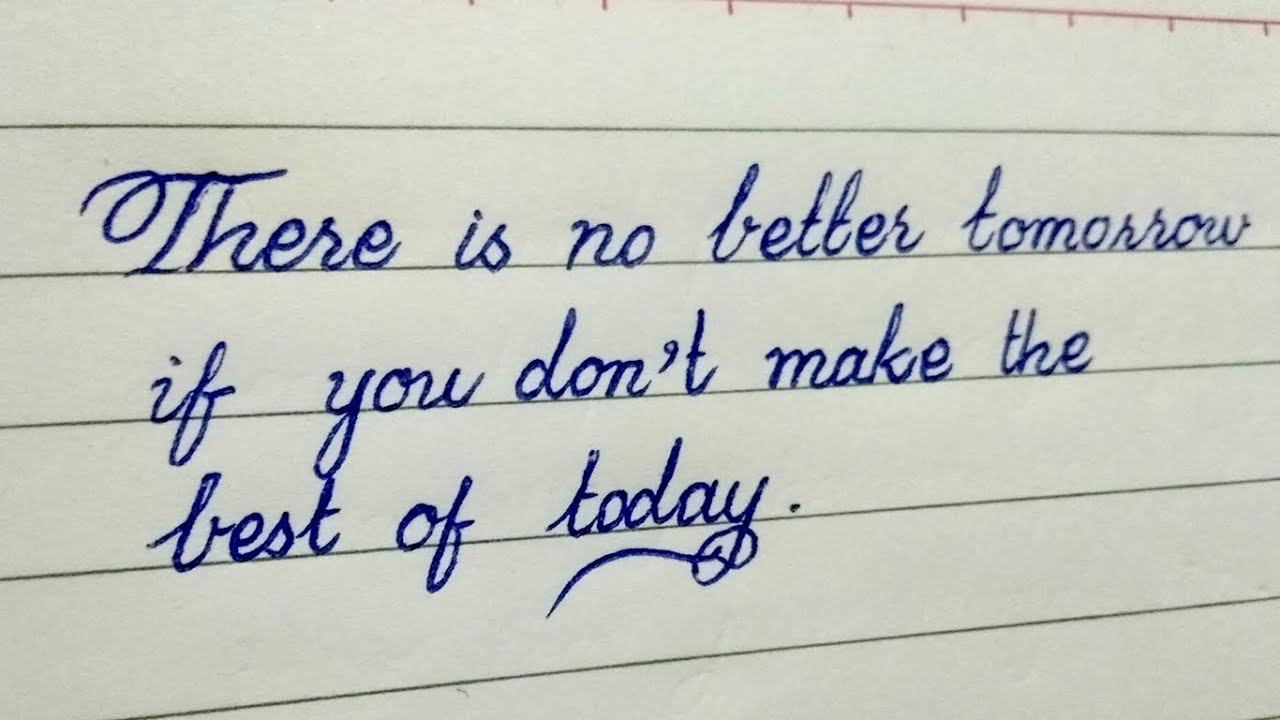 There is no better tomorrow
if you don't make the
best of today.